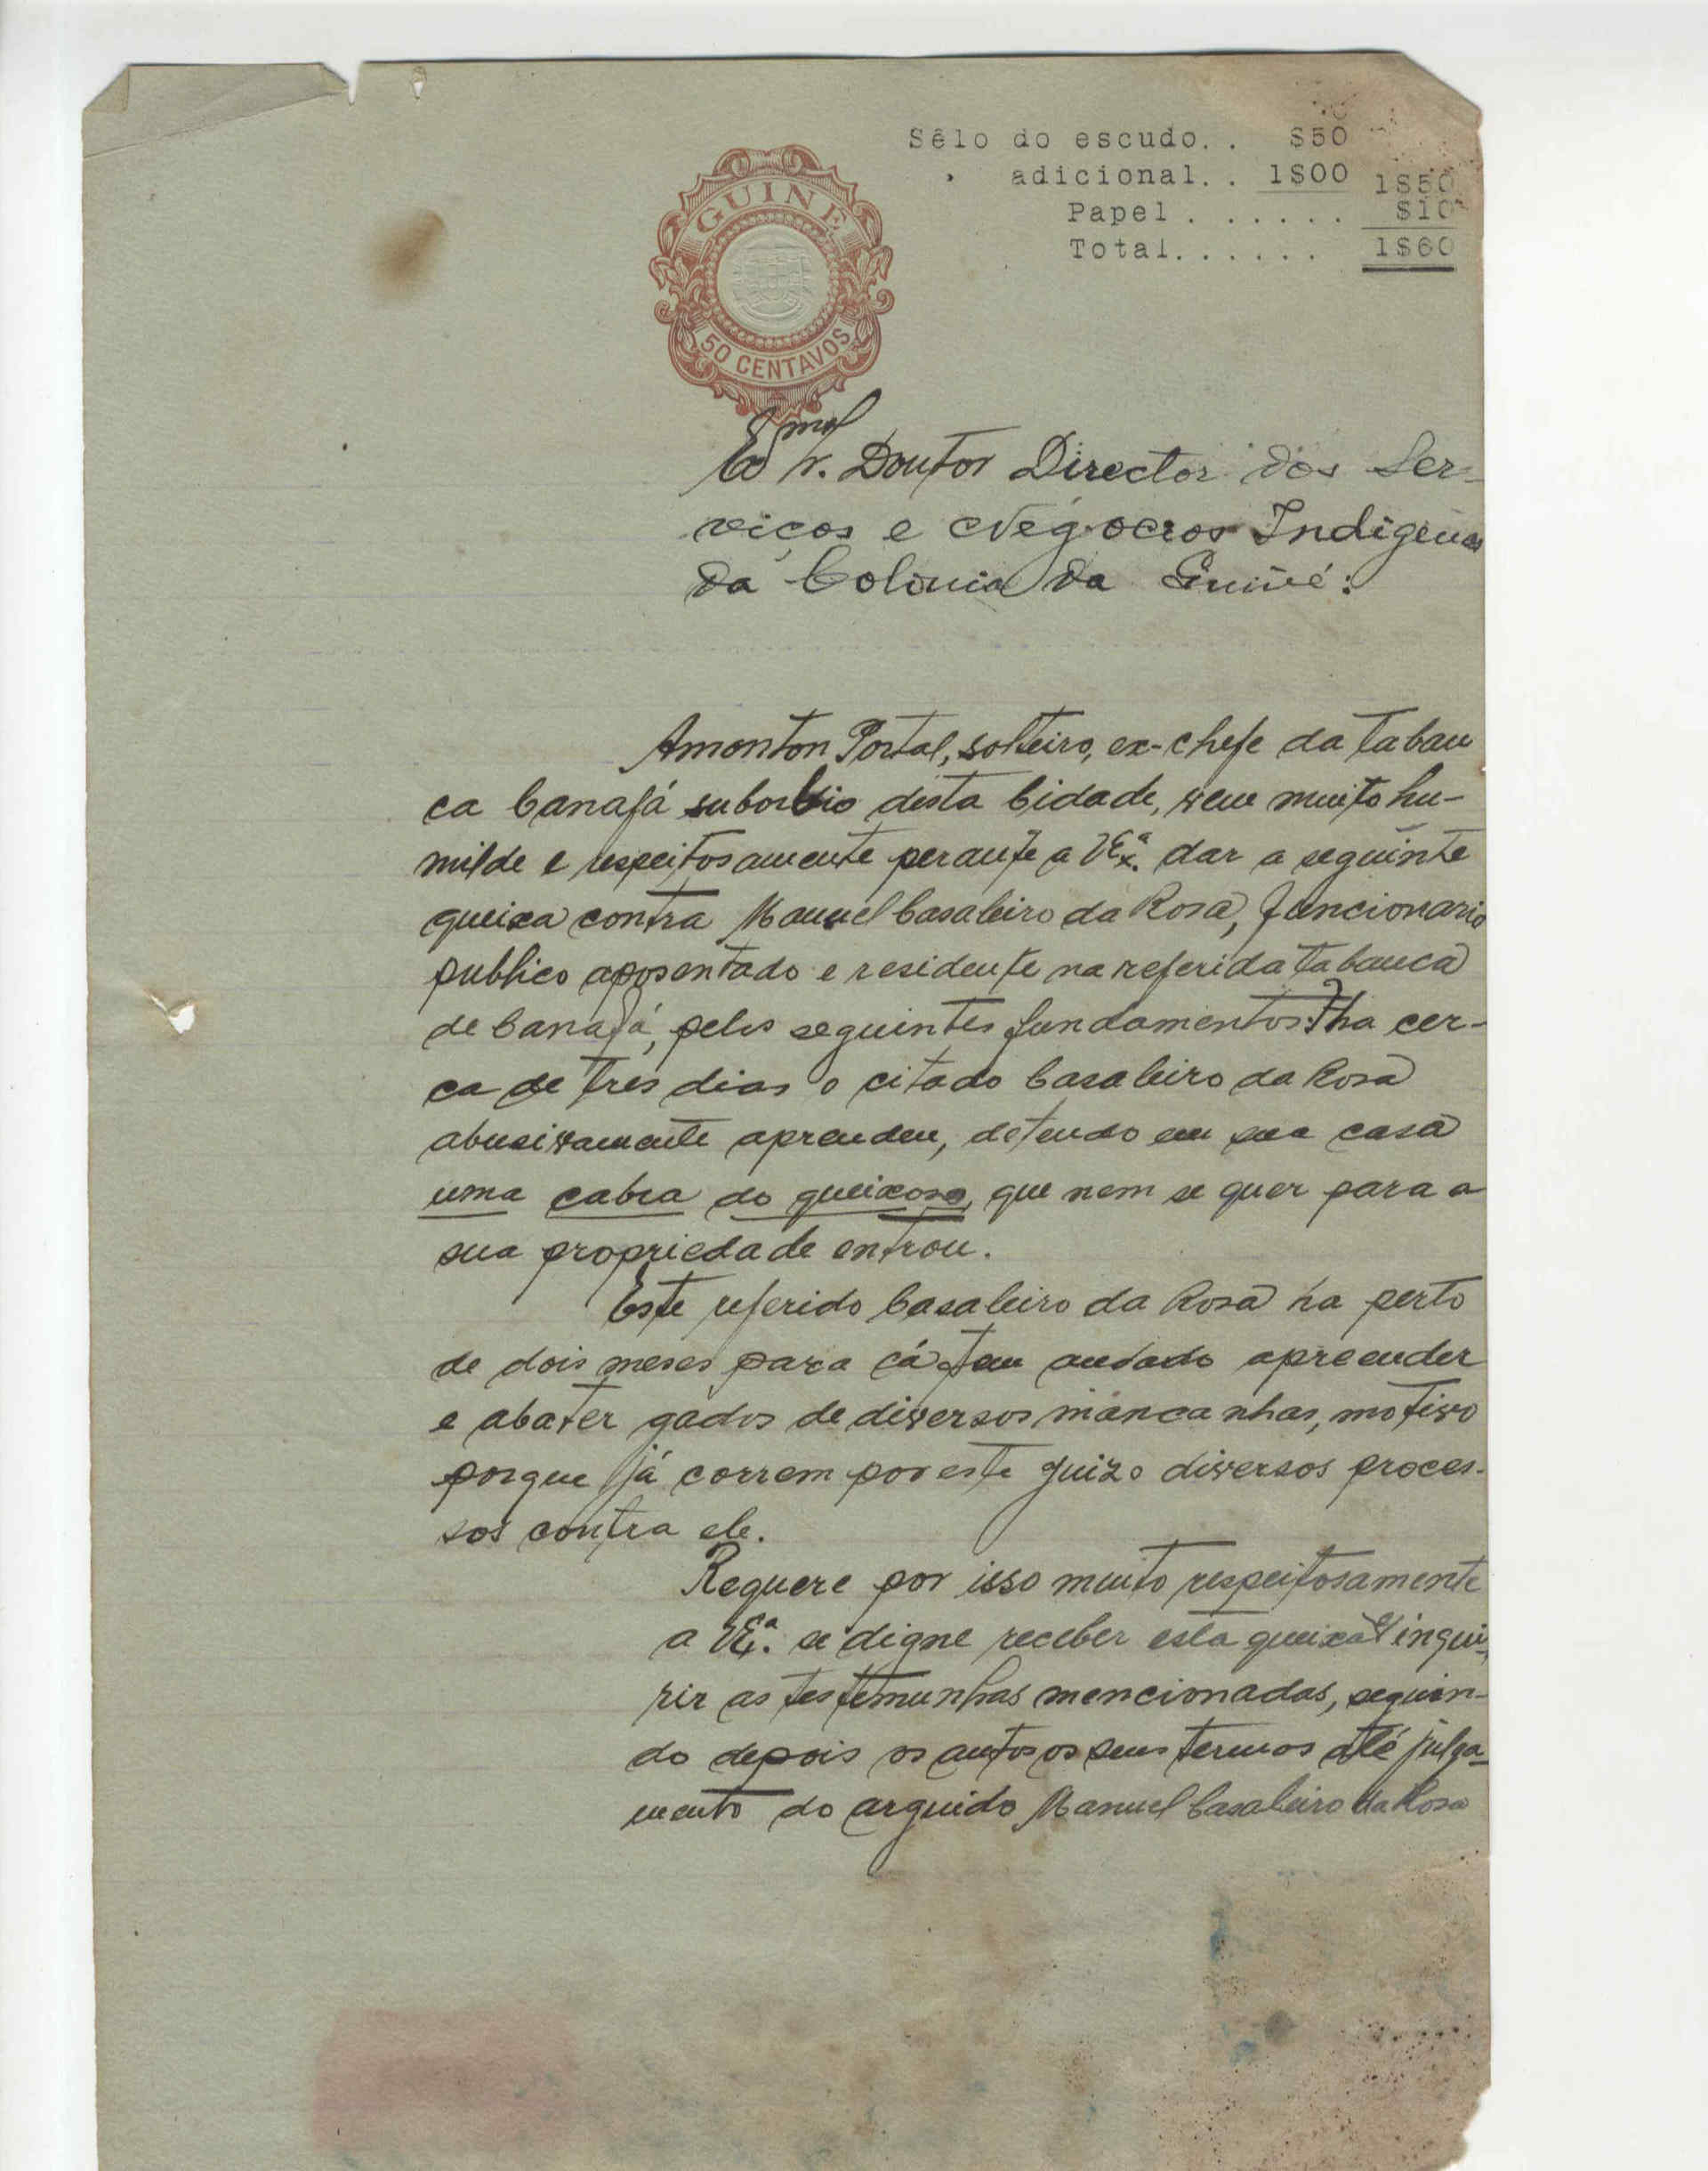 Sêlo do escudo. . $50
adicional. . 1$00 1$50
Papel . . . . . . $10
Total. . . . . . 1$60
GUINÉ
50 CENTAVOS
Exmo Sr. Doutor Director dos Ser-
viços e Negocios Indigenas
da Colonia da Guiné:
Amonton Portal, solteiro, ex-chefe da taban
ca Canafá suborbio desta Cidade, vem muito hu-
milde e respeitosamente perante a V. Exª. dar a seguinte
queixa contra Manuel Casaleiro da Rosa, funcionario
publico aposentado e residente na referida tabanca
de Canafá, pelos seguintes fundamentos: ha cer-
ca de tres dias o citado Casaleiro da Rosa
abusivamente aprendeu, detendo em sua casa
uma cabra do queixoso, que nem se quer para a
sua propriedade entrou.
Este referido Casaleiro da Rosa ha perto
de dois meses para cá tem andado apreender
e abater gados de diversos mancanhas, motivo
porque já correm por este juizo diversos proces-
sos contra ele.
Requere por isso muito respeitosamente
a V. Exª. se digne receber esta queixa e inqui-
rir as testemunhas mencionadas, seguin-
do depois os autos os seus termos até julga-
mento do arguido Manuel Casaleiro da Rosa